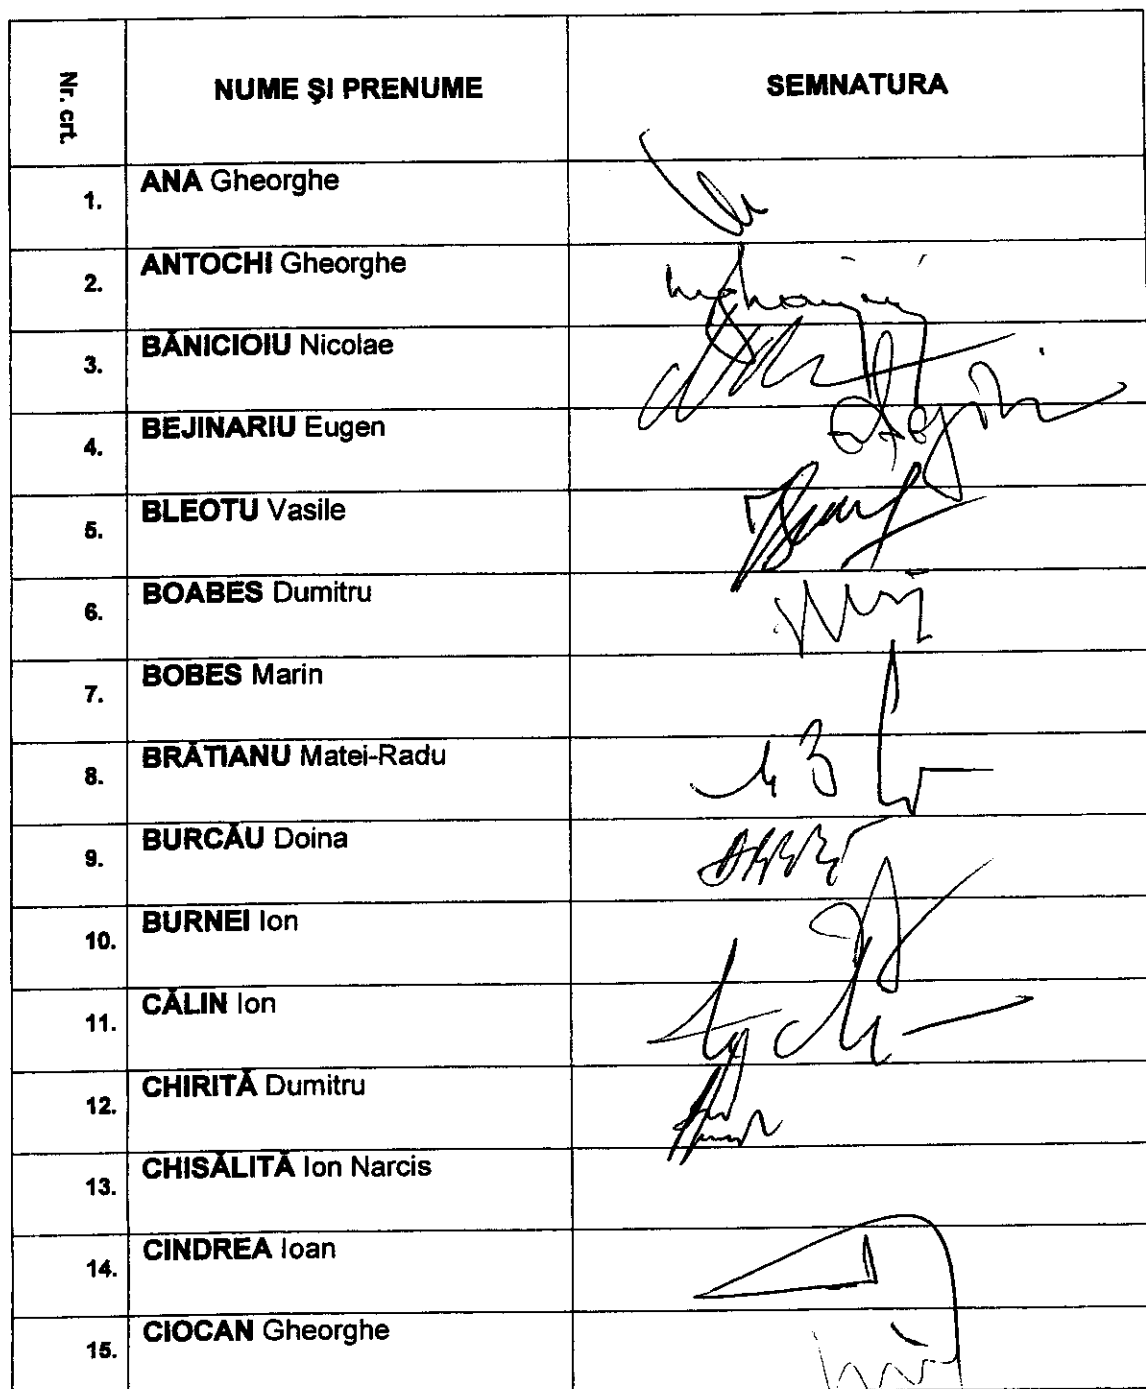 Nr. crt.
NUME ŞI PRENUME
SEMNATURA
1. ANA Gheorghe
2. ANTOCHI Gheorghe
3. BĂNICIOIU Nicolae
4. BEJINARIU Eugen
5. BLEOTU Vasile
6. BOABES Dumitru
7. BOBES Marin
8. BRĂTIANU Matei-Radu
9. BURCĂU Doina
10. BURNEI Ion
11. CĂLIN Ion
12. CHIRITĂ Dumitru
13. CHISĂLITĂ Ion Narcis
14. CINDREA Ioan
15. CIOCAN Gheorghe